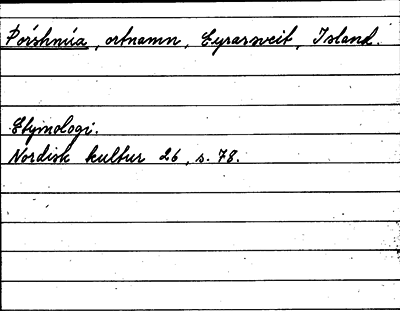 Pórshnúa, ortnamn, Eyrarsveit, Island.
Etymologi.
Nordisk kultur 26, s. 78.